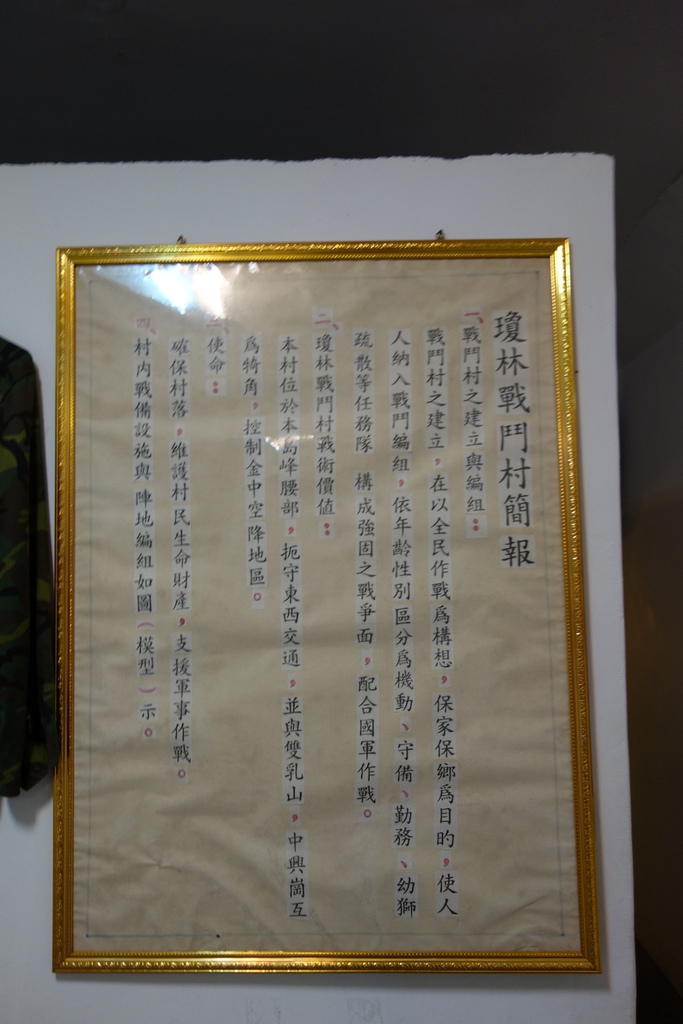 瓊林戰鬥村簡報
一、戰鬥村之建立與編組：
戰鬥村之建立，在以全民作戰爲構想，保家保鄉爲目的，使人
人納入戰鬥編組，依年齡性別區分爲機動、守備、勤務、幼獅
疏散等任務隊 構成強固之戰爭面，配合國軍作戰。
二、瓊林戰鬥村戰術價值：
本村位於本島峰腰部，扼守東西交通，並與雙乳山，中興崗互
爲犄角，控制金中空降地區。
三、使命：
確保村落，維護村民生命財產，支援軍事作戰。
四、村內戰備設施與陣地編組如圖（模型）示。